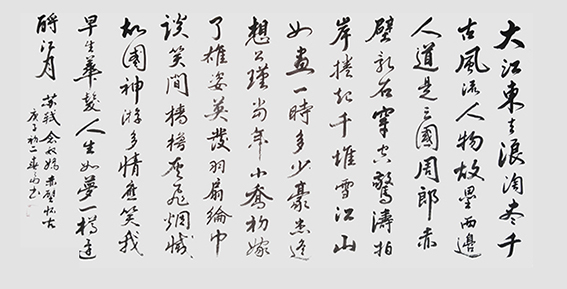 大江東去浪淘盡千
古風流人物故壘西邊
人道是三國周郎赤
壁亂石穿空驚濤拍
岸捲起千堆雪江山
如畫一時多少豪杰遙
想公瑾當年小喬初嫁
了雄姿英發羽扇綸巾
談笑間檣櫓灰飛烟滅
故國神游多情應笑我
早生華髮人生如夢一樽還
酹江月
蘇軾念奴嬌赤壁懷古
庚子初二